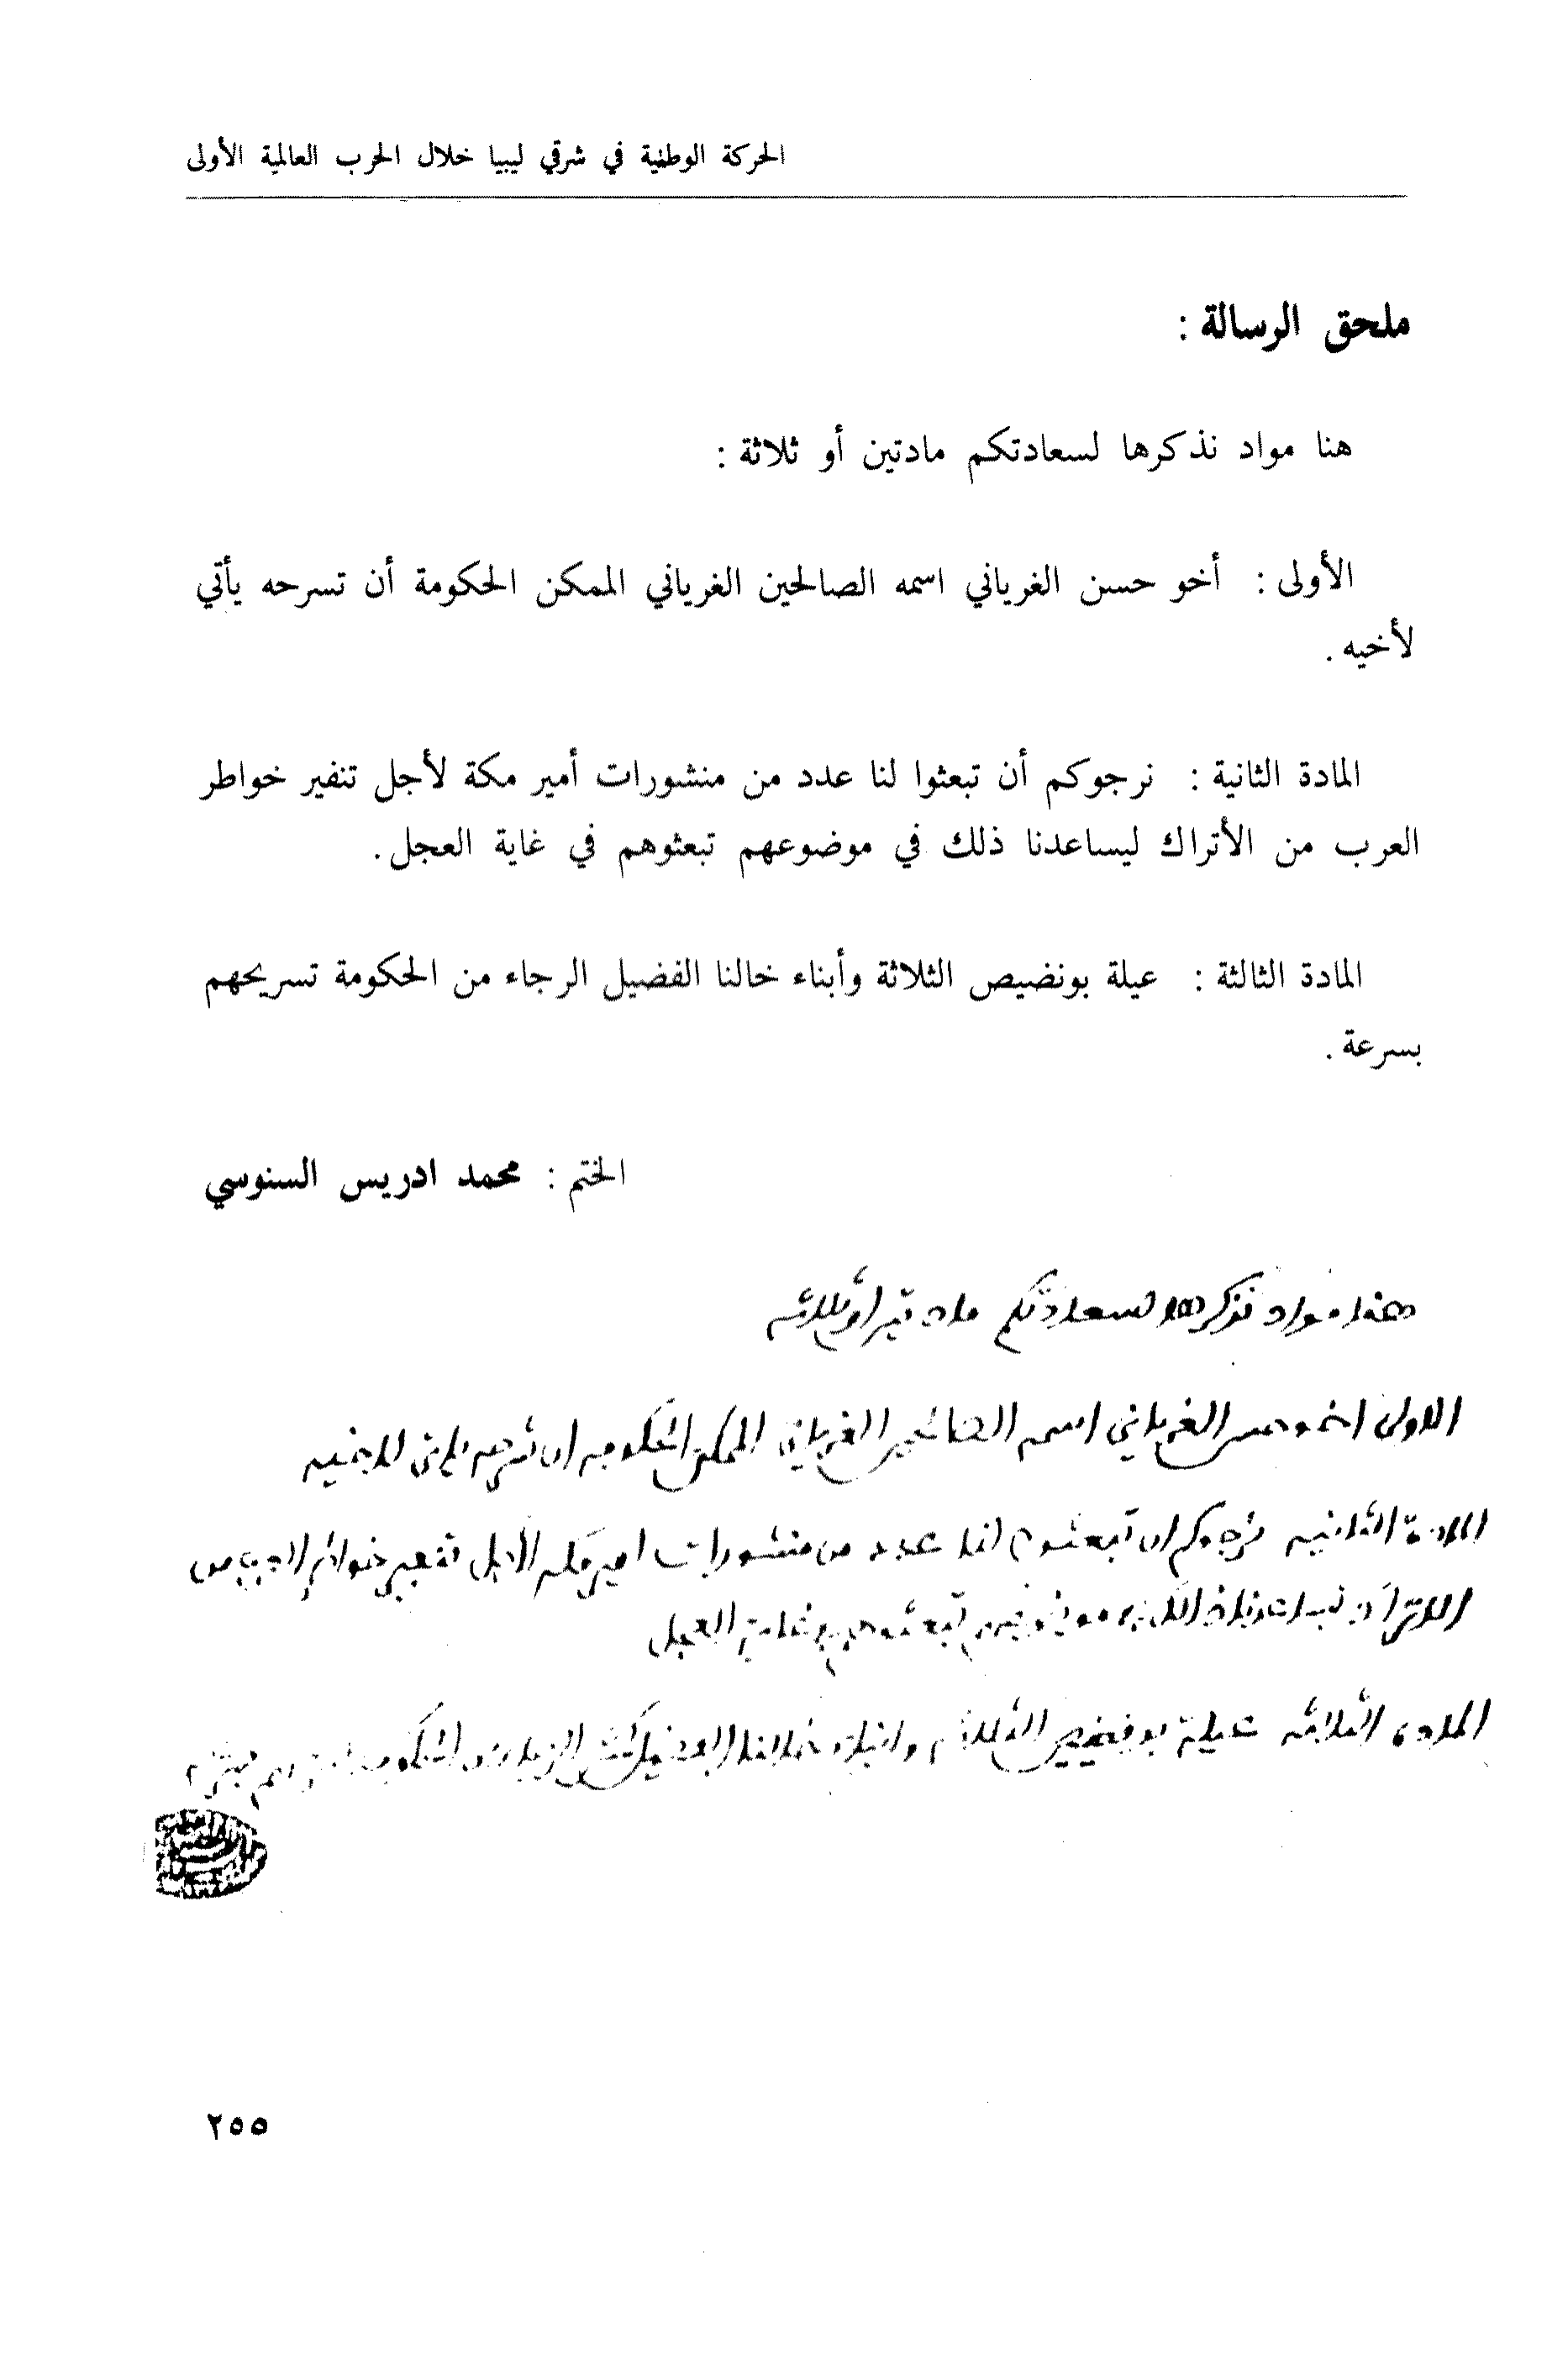 الحركة الوطنية في شرقي ليبيا خلال الحرب العالمية الأولى
ملحق الرسالة :
هنا مواد نذكرها لسعادتكم مادتين أو ثلاثة :
الأولى : أخو حسن الغرياني اسمه الصالحين الغرياني الممكن الحكومة أن تسرحه يأتي
لأخيه .
المادة الثانية : نرجوكم أن تبعثوا لنا عدد من منشورات أمير مكة لأجل تنفير خواطر
العرب من الأتراك ليساعدنا ذلك في موضوعهم تبعثوهم في غاية العجل .
المادة الثالثة : عيلة بونضيص الثلاثة وأبناء خالنا الفضيل الرجاء من الحكومة تسريحهم
بسرعة .
الختم : محمد ادريس السنوسي
هنا مواد نذكرها لسعادتكم مادتين أو ثلاثه
الاولى اخو حسن الغرياني اسمه الصالحين الغرياني الممكن الحكومه ان تسرحه ياتي لاخيه
المادة الثانيه نرجوكم ان تبعثوا لنا عدد من منشورات امير مكه لأجل تنفير خواطر العرب من
الاتراك ليساعدنا ذلك في موضوعهم تبعثوهم في غاية العجل
المادة الثلاثه عيلة بونضيص الثلاثه وابناء خالنا الفضيل الحكومه
٢٥٥